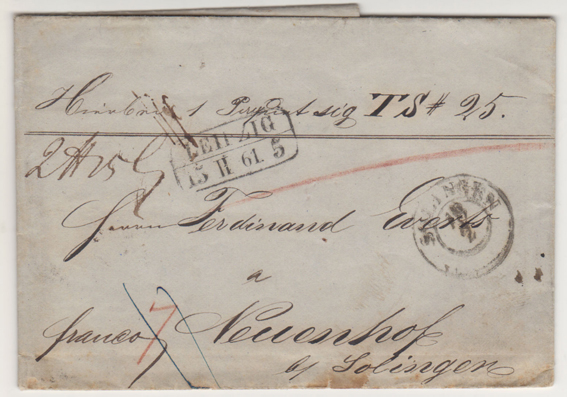 Hierbei 1 Packet sig TS # 25.
LEIPZIG
15 II 61. 5
2 # 15
SOLINGEN
Herrn Ferdinand Evertz
a
franco 7 Neuenhof
b/ Solingen